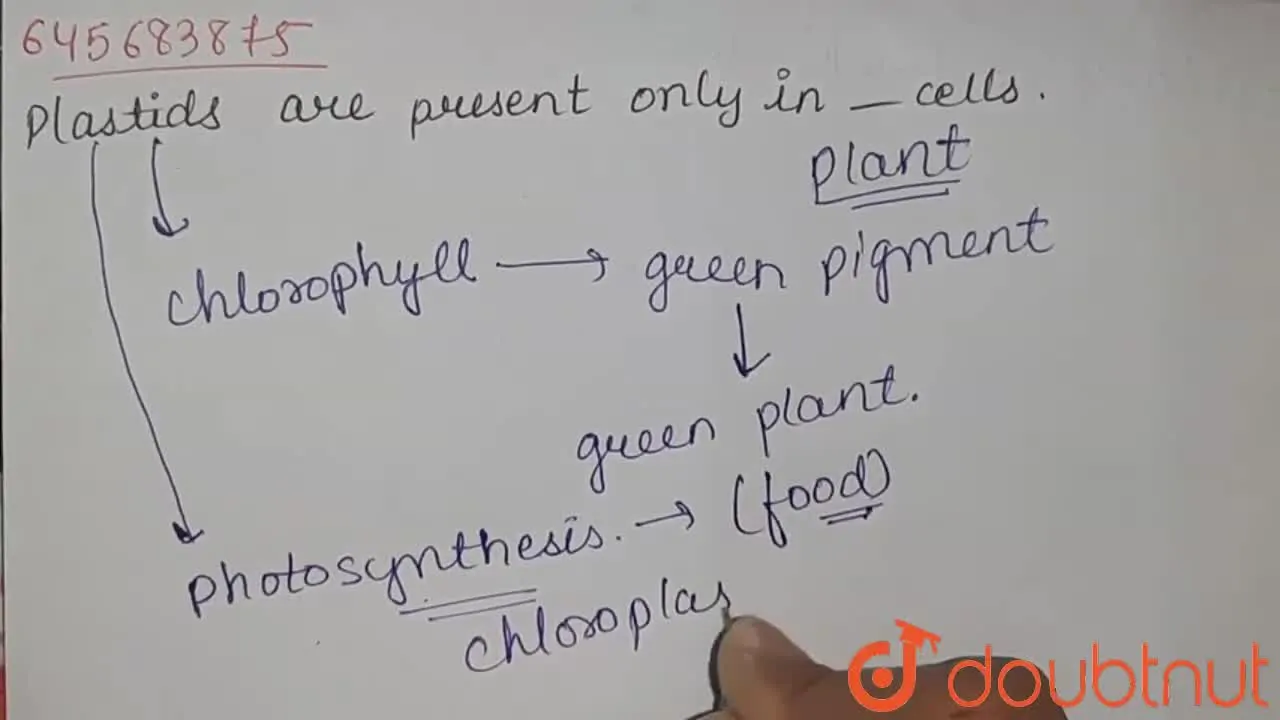 645683875
Plastids are present only in _ cells.
Plant
chlorophyll → green pigment
green plant.
photosynthesis. → (food)
chloroplas
doubtnut